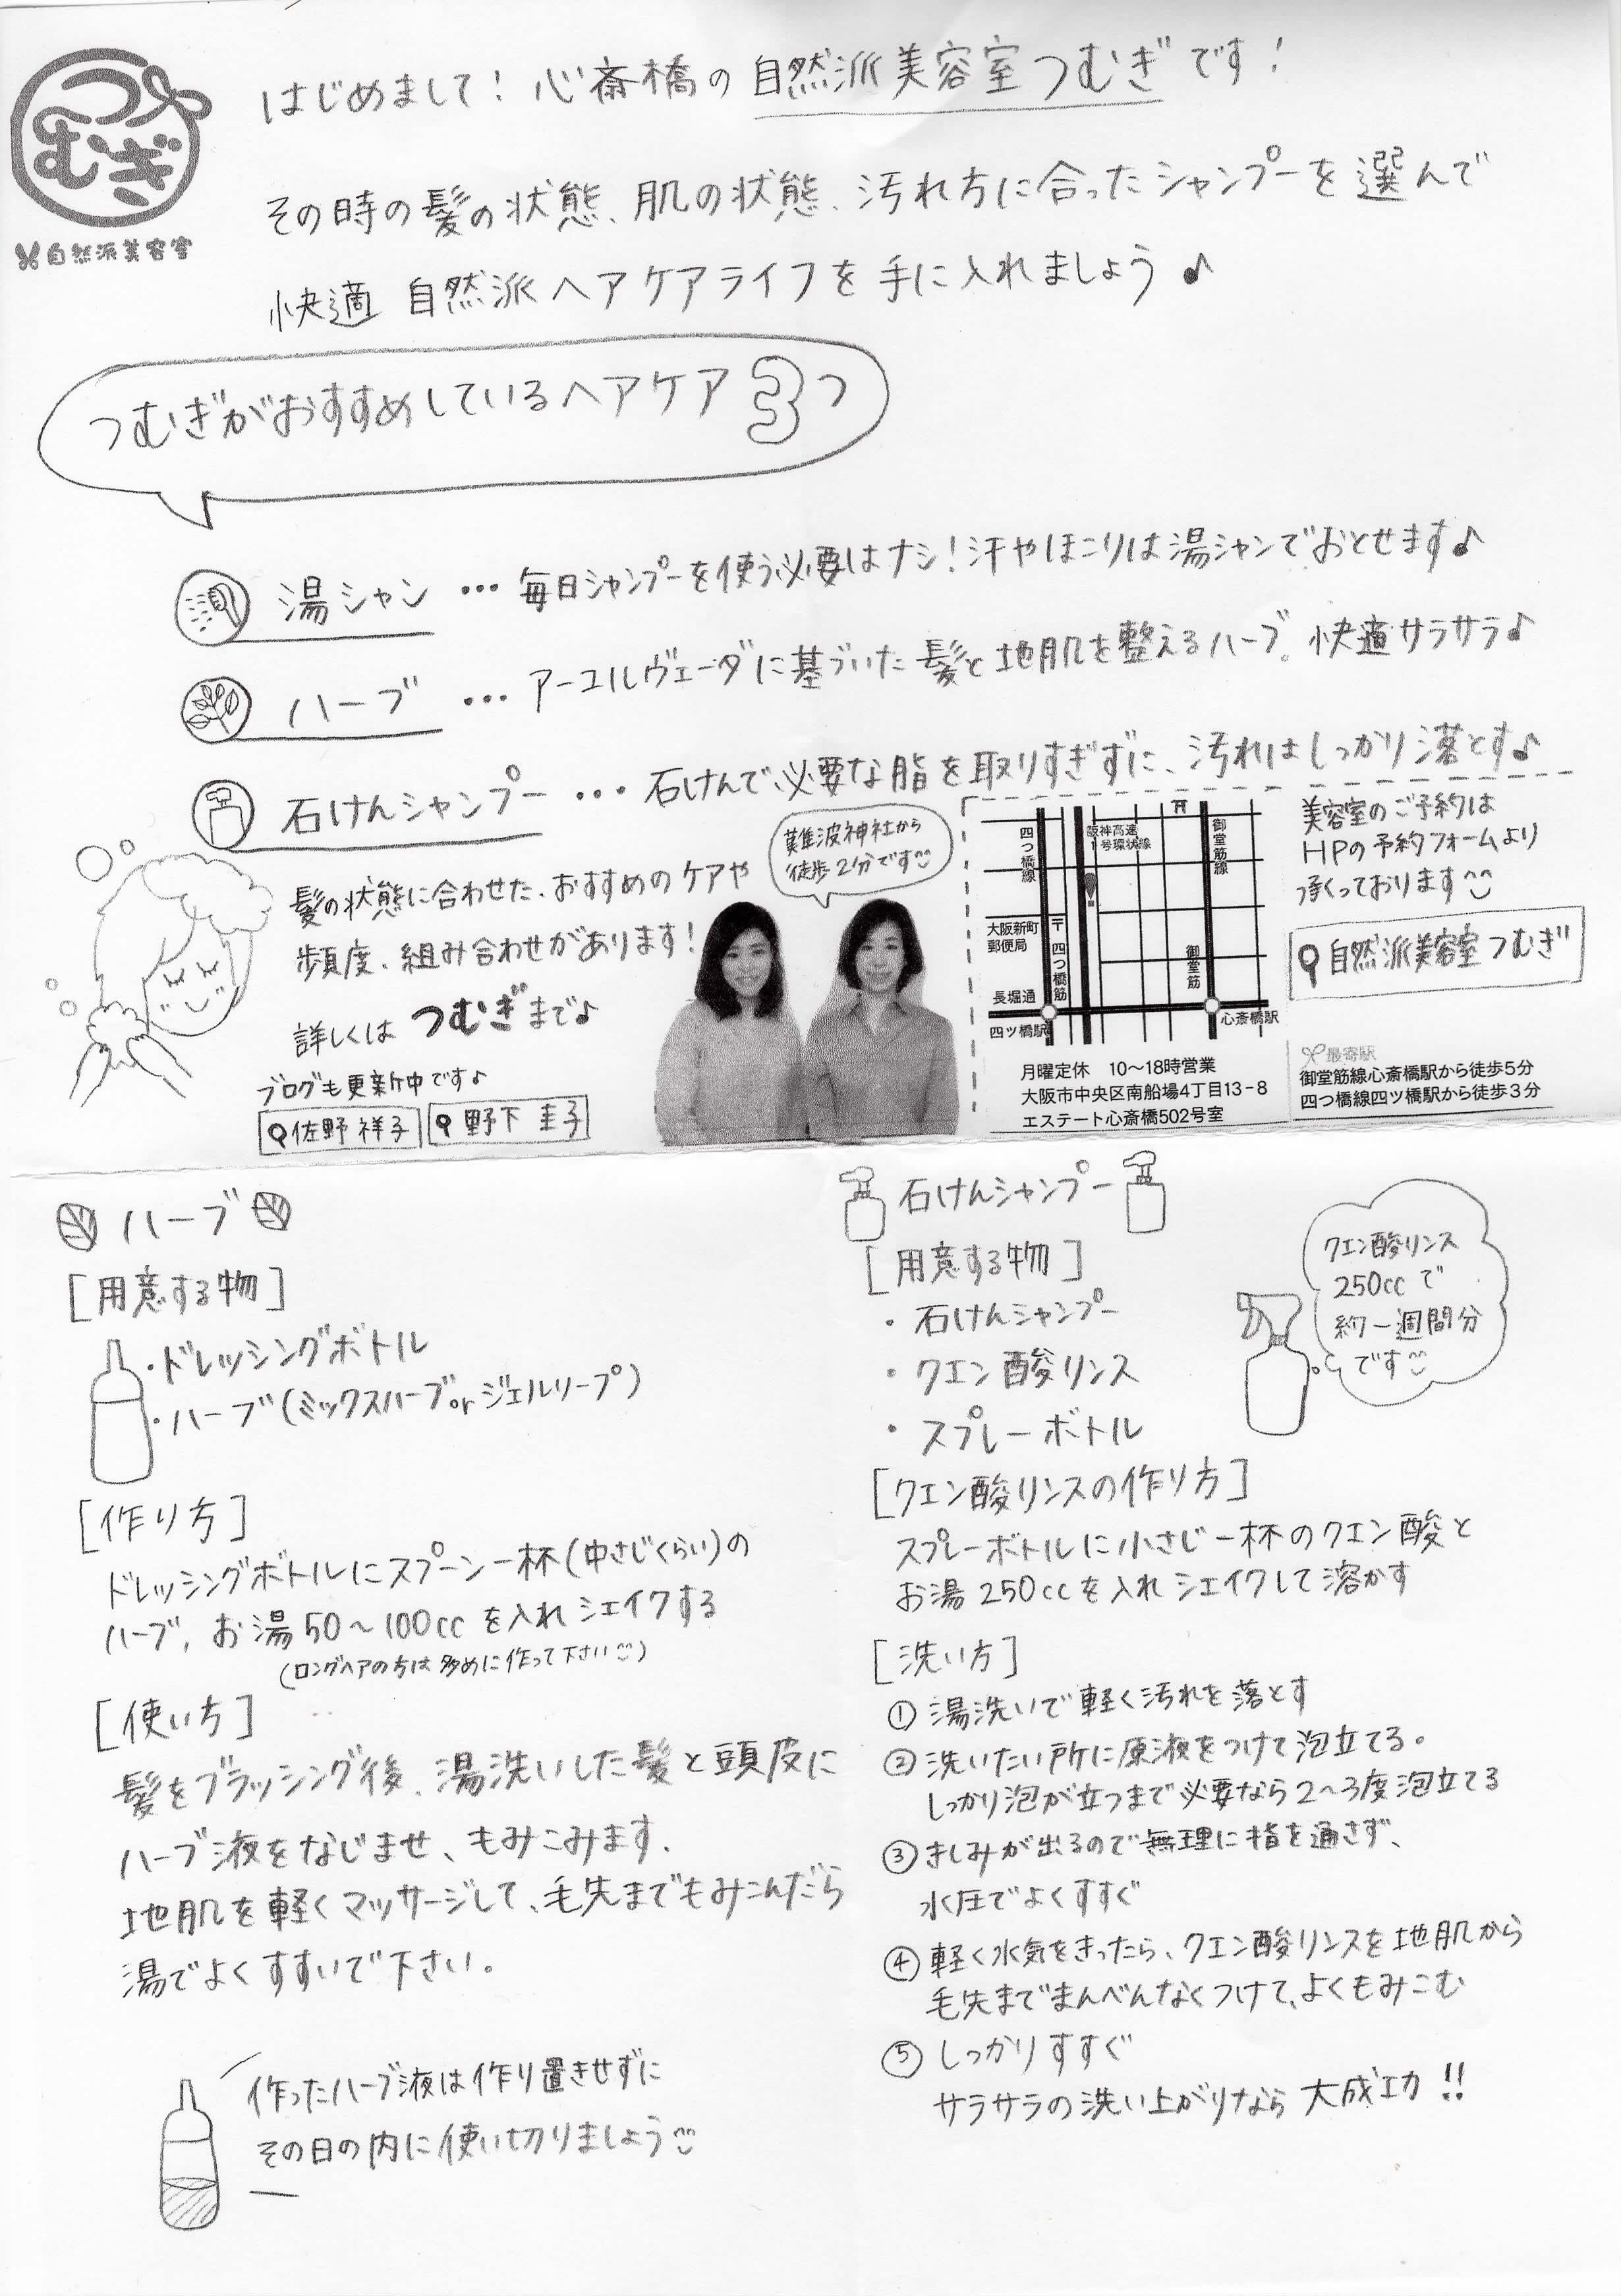 つむぎ
自然派美容室
はじめまして！心斎橋の自然派美容室つむぎです！
その時の髪の状態、肌の状態、汚れ方に合ったシャンプーを選んで
快適 自然派ヘアケアライフを手に入れましょう♪
つむぎがおすすめしているヘアケア3つ
湯シャン … 毎日シャンプーを使う必要はナシ！汗やほこりは湯シャンでおとせます♪
ハーブ … アーユルヴェーダに基づいた髪と地肌を整えるハーブ。快適サラサラ♪
石けんシャンプー … 石けんで必要な脂を取りすぎずに、汚れはしっかり落とす♪
髪の状態に合わせた、おすすめのケアや
頻度、組み合わせがあります！
詳しくは つむぎまで♪
ブログも更新中です♪
佐野 祥子
野下 圭子
難波神社から
徒歩2分です
四つ橋線
阪神高速
1号環状線
御堂筋線
大阪新町
郵便局
四つ橋筋
御堂筋
長堀通
四ツ橋駅
心斎橋駅
月曜定休 10〜18時営業
大阪市中央区南船場4丁目13-8
エステート心斎橋502号室
美容室のご予約は
HPの予約フォームより
承っております
自然派美容室つむぎ
最寄駅
御堂筋線心斎橋駅から徒歩5分
四つ橋線四ツ橋駅から徒歩3分
ハーブ
[用意する物]
・ドレッシングボトル
・ハーブ(ミックスハーブorジェルリープ)
[作り方]
ドレッシングボトルにスプーン一杯(中さじくらい)の
ハーブ、お湯50〜100ccを入れシェイクする
(ロングヘアの方は多めに作って下さい)
[使い方]
髪をブラッシング後、湯洗いした髪と頭皮に
ハーブ液をなじませ、もみこみます.
地肌を軽くマッサージして、毛先までもみこんだら
湯でよくすすいで下さい。
作ったハーブ液は作り置きせずに
その日の内に使い切りましょう
石けんシャンプー
[用意する物]
・石けんシャンプー
・クエン酸リンス
・スプレーボトル
クエン酸リンス
250ccで
約一週間分
です
[クエン酸リンスの作り方]
スプレーボトルに小さじ一杯のクエン酸と
お湯250ccを入れシェイクして溶かす
[洗い方]
①湯洗いで軽く汚れを落とす
②洗いたい所に原液をつけて泡立てる。
しっかり泡が立つまで必要なら2〜3度泡立てる
③きしみが出るので無理に指を通さず、
水圧でよくすすぐ
④軽く水気をきったら、クエン酸リンスを地肌から
毛先までまんべんなくつけて、よくもみこむ
⑤しっかりすすぐ
サラサラの洗い上がりなら大成功!!